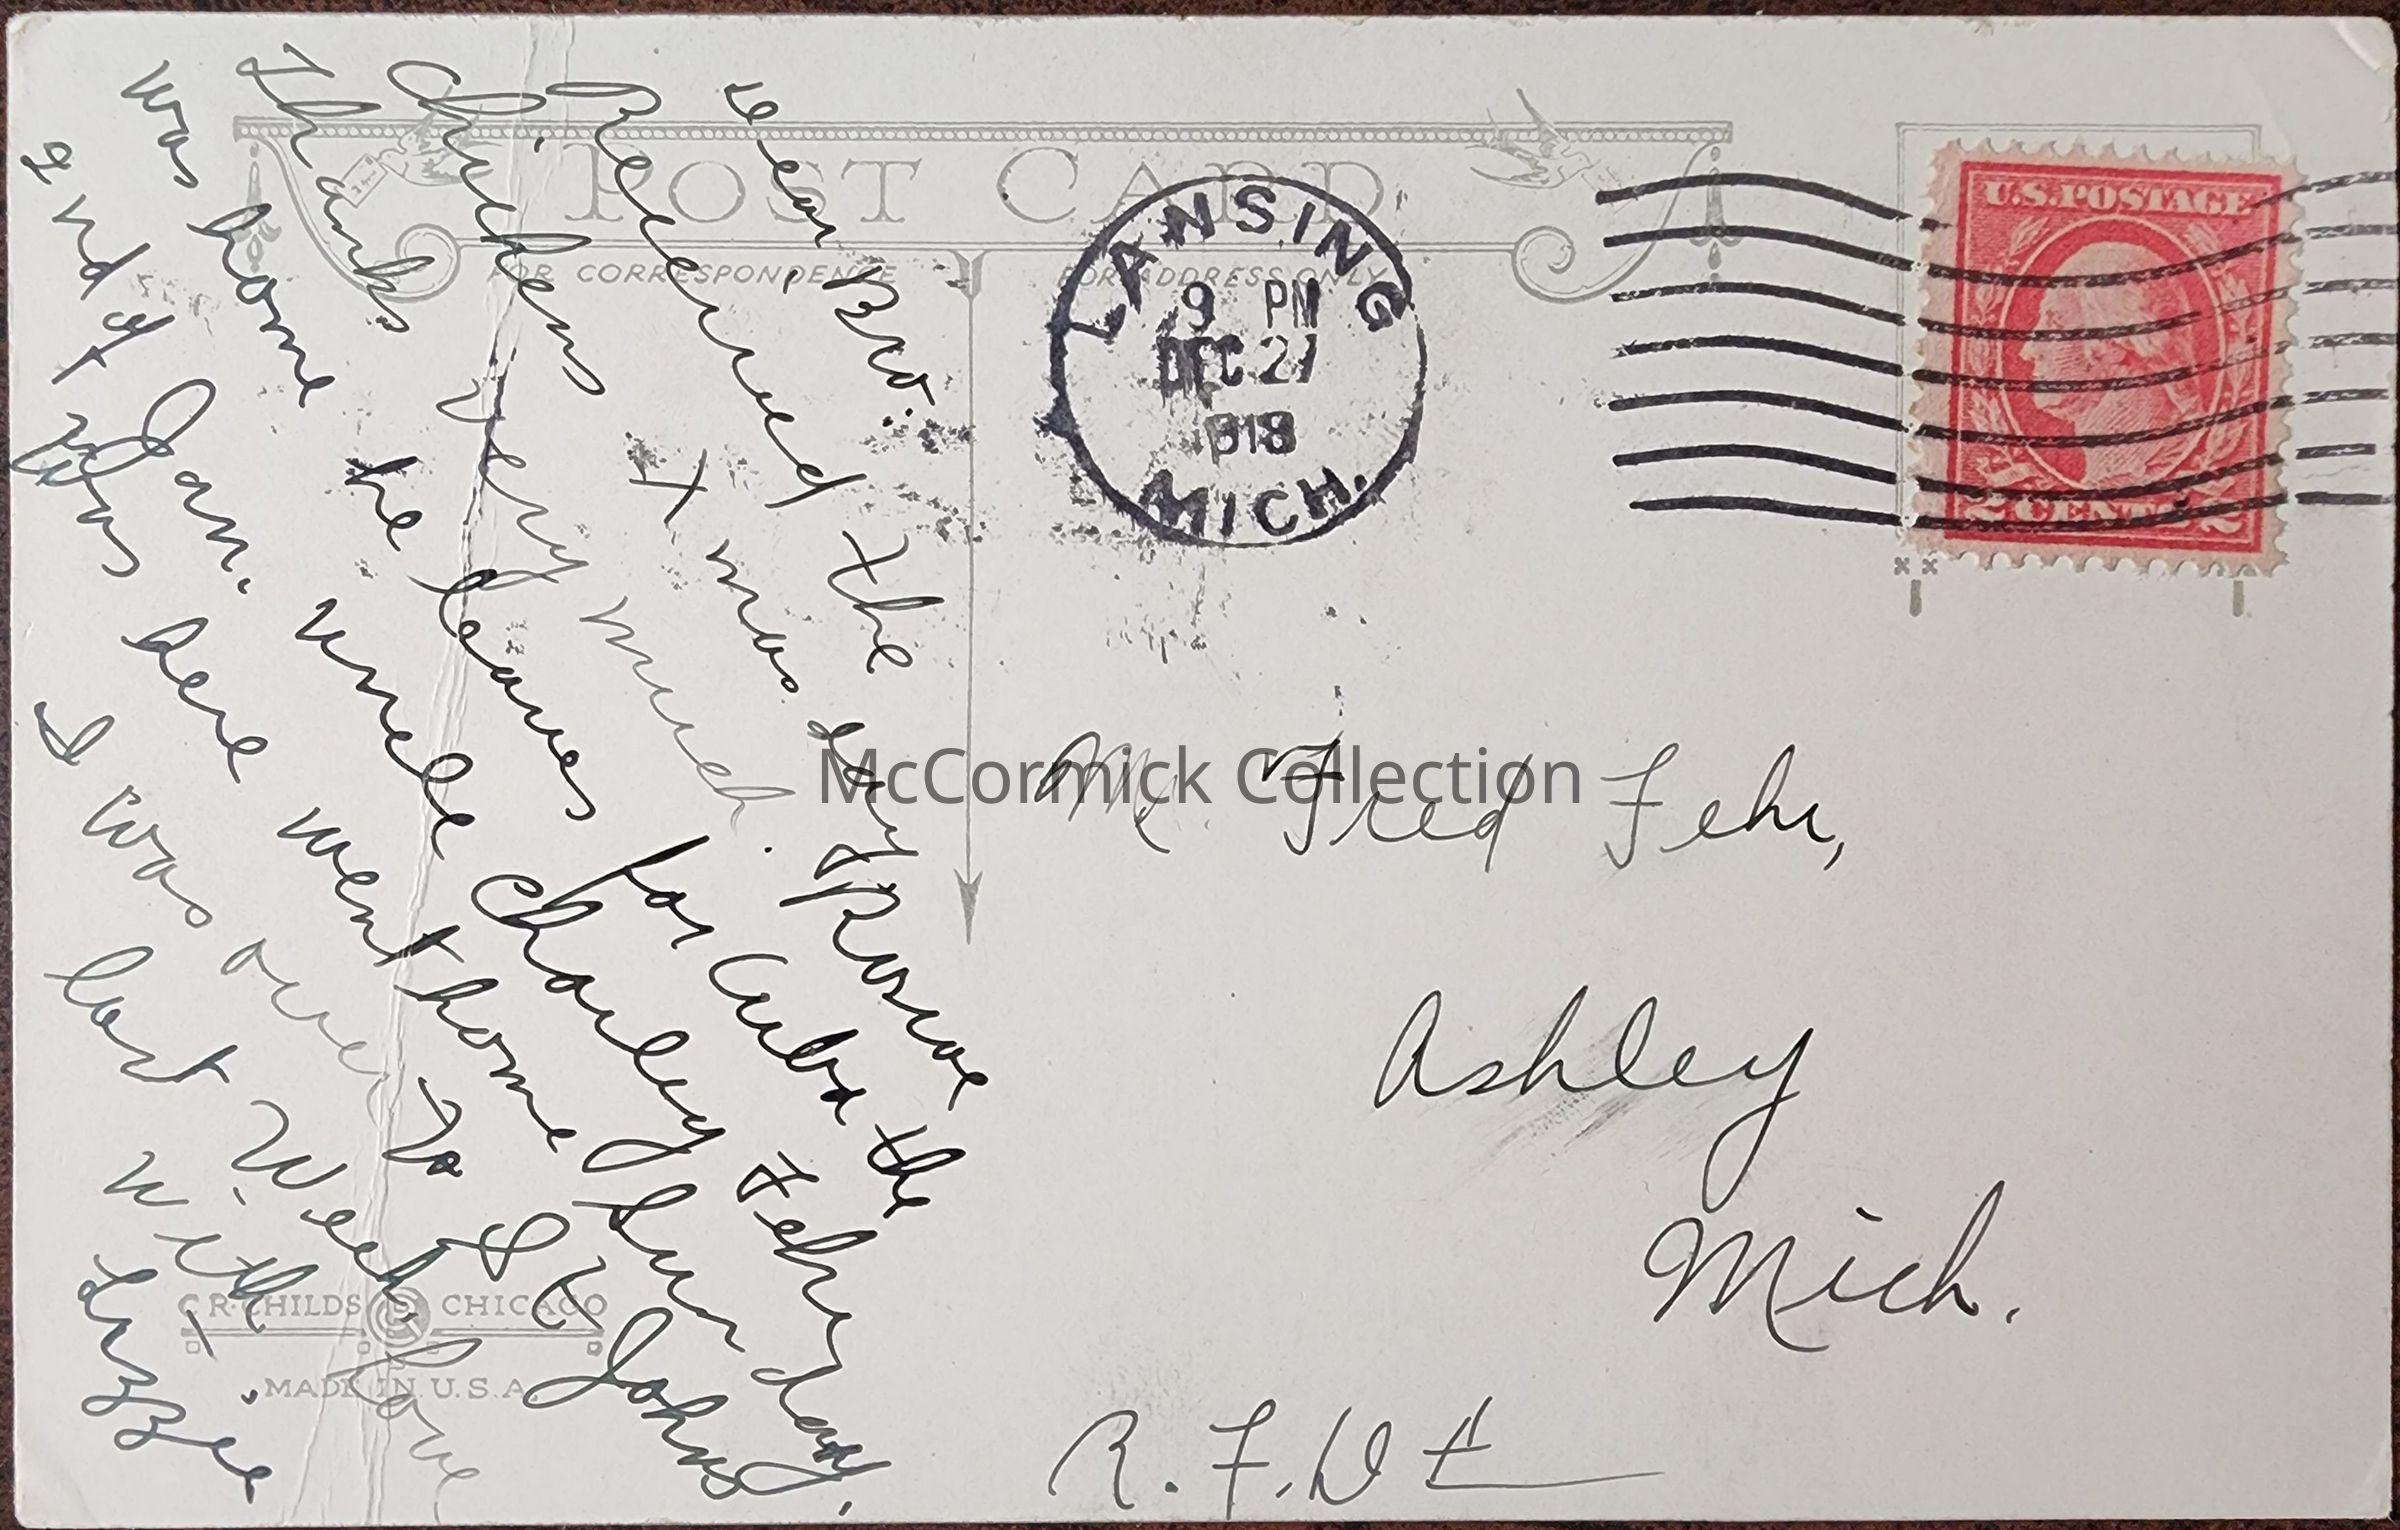 POST CARD
FOR CORRESPONDENCE
FOR ADDRESS ONLY
LANSING
9 PM
DEC 27
1918
MICH.
U.S. POSTAGE
2 CENTS 2
Dear Bro.
Received the
Chickens X mas day
Thanks very much. Rosco
was home he leaves for Cuba the
2nd of Jan. uncle Charley Fehr
& wife was here went home Sunday.
I was over to St Johns
last Week.
with love
Lizzie
Mr. Fred Fehr,
Ashley
Mich.
R. F. D
C R. CHILDS CHICAGO
MADE IN U.S.A.
McCormick Collection